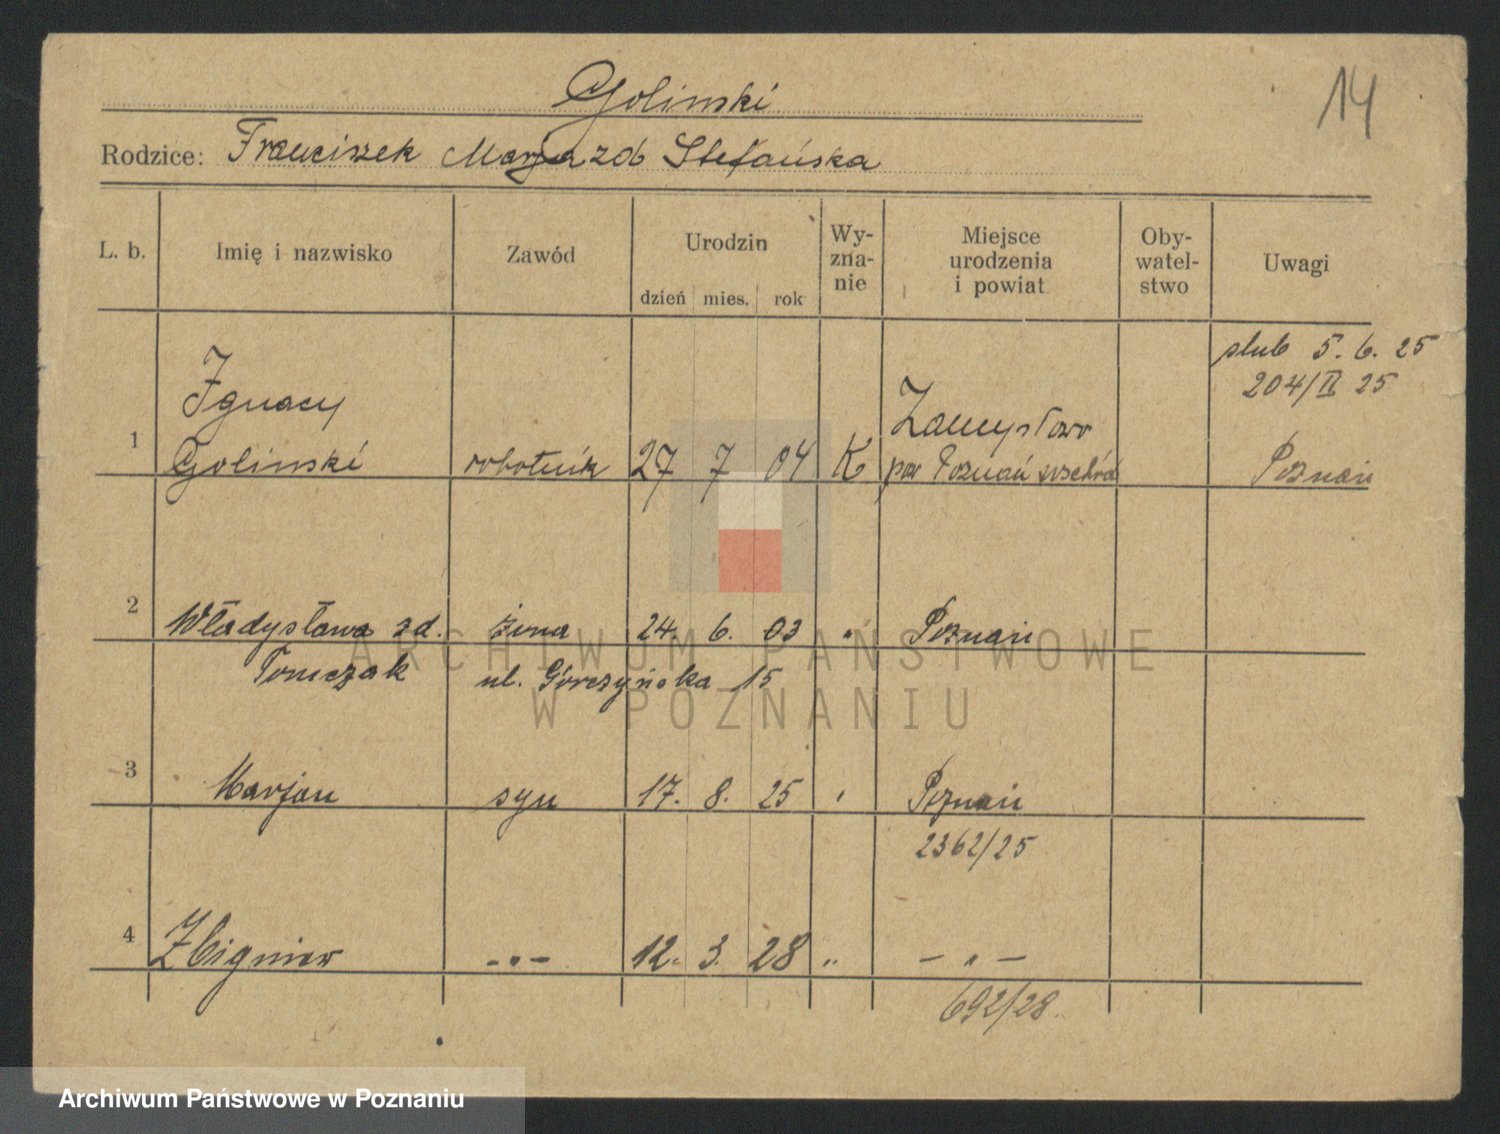 14
Golinski
Rodzice: Franciszek Marja zd Stefańska
L. b. Imię i nazwisko Zawód Urodzin dzień mies. rok Wy-zna-nie Miejsce urodzenia i powiat Oby-watel-stwo Uwagi
ślub 5. 6. 25
204/II 25
Ignacy
1 Golinski robotnik 27 7 04 K Zamysłowo
pow Poznań wschód Poznań
2 Władysława zd. żona 24. 6. 03 " Poznań
Tomczak ul. Górczyńska 15
3 Marjan syn 17. 8. 25 " Poznań
2362/25
4 Zbigniew -"- 12. 3. 28 " -"-
692/28.
ARCHIWUM PAŃSTWOWE
W POZNANIU
Archiwum Państwowe w Poznaniu